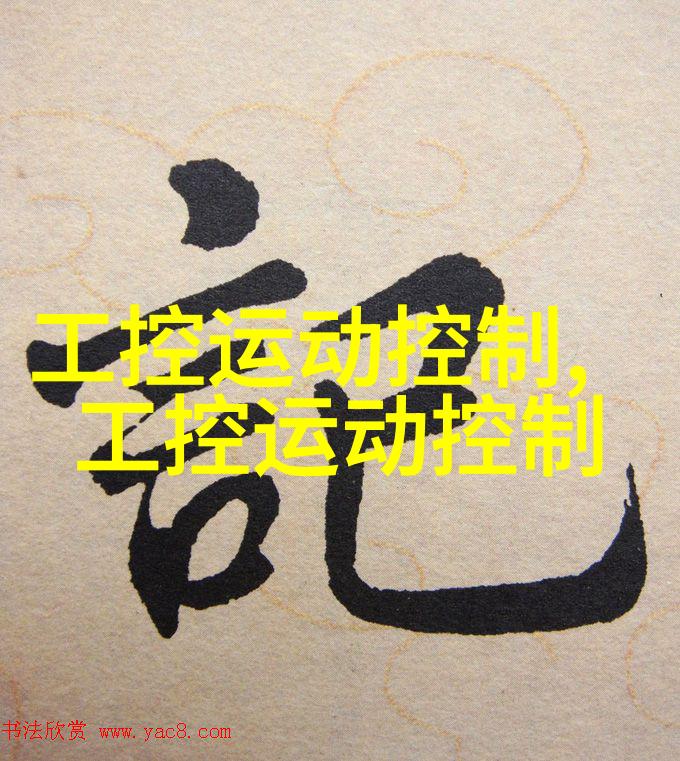 記
工控运动控制,
工控运动控制
书法欣赏 www.yac8.com